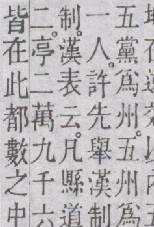 五黨爲州。五州爲
一人。許先舉漢制
制。漢表云。凡縣道
二。亭二萬九千六
皆在此都數之中